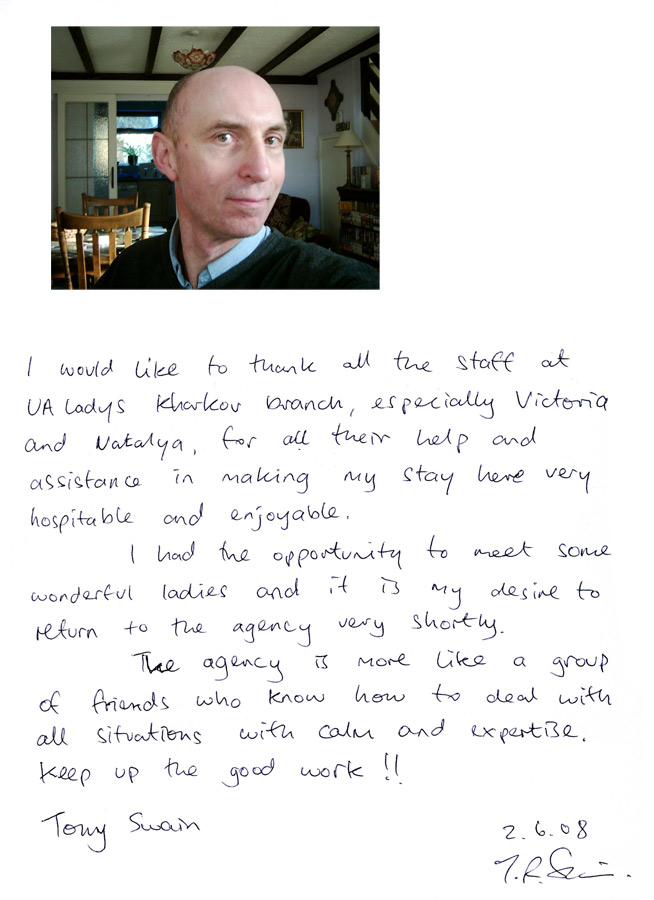 I would like to thank all the staff at
UA Ladys Kharkov branch, especially Victoria
and Natalya, for all their help and
assistance in making my stay here very
hospitable and enjoyable.
I had the opportunity to meet some
wonderful ladies and it is my desire to
return to the agency very shortly.
The agency is more like a group
of friends who know how to deal with
all situations with calm and expertise.
Keep up the good work !!
Tony Swain
2.6.08
T.R.Swain.